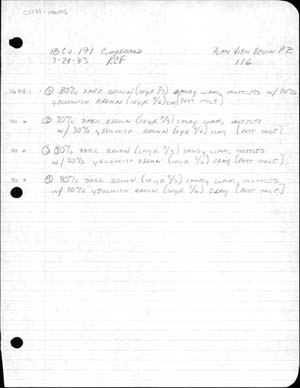 18CV 191 Cumberland
Plan View Below PZ
7-28-83 RCF
116
① 80% dark brown (10YR 3/3) sandy loam, mottled w/ 20%
yellowish brown (10YR 5/6) clay [post mole]
② 70% dark brown (10YR 3/3) sandy loam, mottled
w/ 30% yellowish brown (10YR 5/6) clay [post mole]
③ 80% dark brown (10YR 3/3) sandy loam, mottled
w/ 20% yellowish brown (10YR 5/6) clay [post mole]
④ 80% dark brown (10YR 3/3) sandy loam, mottled
w/ 20% yellowish brown (10YR 5/6) clay [post mole]